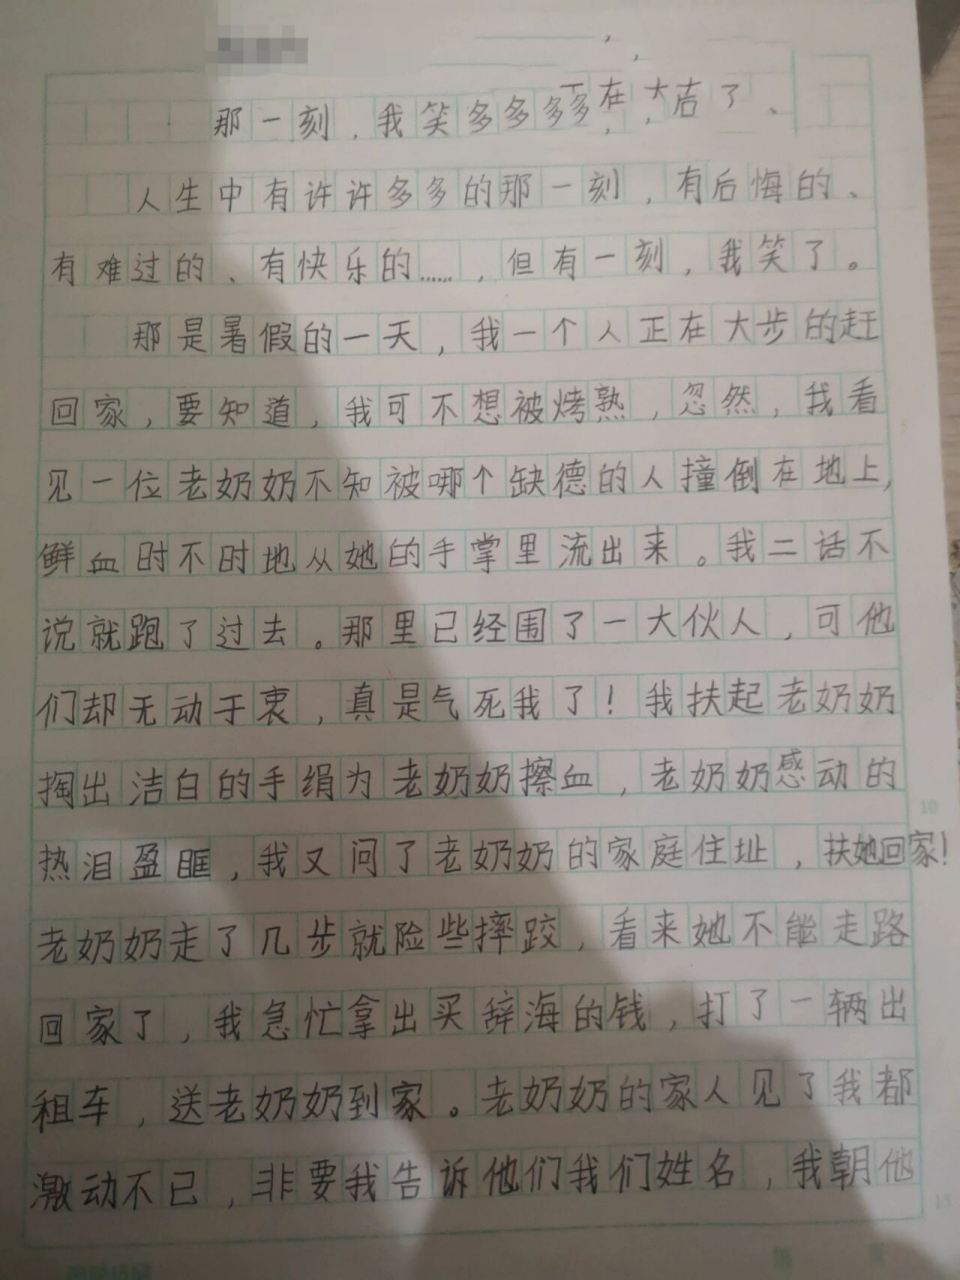 那一刻，我笑多多多多在大吉了、
人生中有许许多多的那一刻，有后悔的、
有难过的、有快乐的……，但有一刻，我笑了。
那是暑假的一天，我一个人正在大步的赶
回家，要知道，我可不想被烤熟，忽然，我看
见一位老奶奶不知被哪个缺德的人撞倒在地上，
鲜血时不时地从她的手掌里流出来。我二话不
说就跑了过去。那里已经围了一大伙人，可他
们却无动于衷，真是气死我了！我扶起老奶奶
掏出洁白的手绢为老奶奶擦血，老奶奶感动的
热泪盈眶，我又问了老奶奶的家庭住址，扶她回家！
老奶奶走了几步就险些摔跤，看来她不能走路
回家了，我急忙拿出买辞海的钱，打了一辆出
租车，送老奶奶到家。老奶奶的家人见了我都
激动不已，非要我告诉他们我们姓名，我朝他